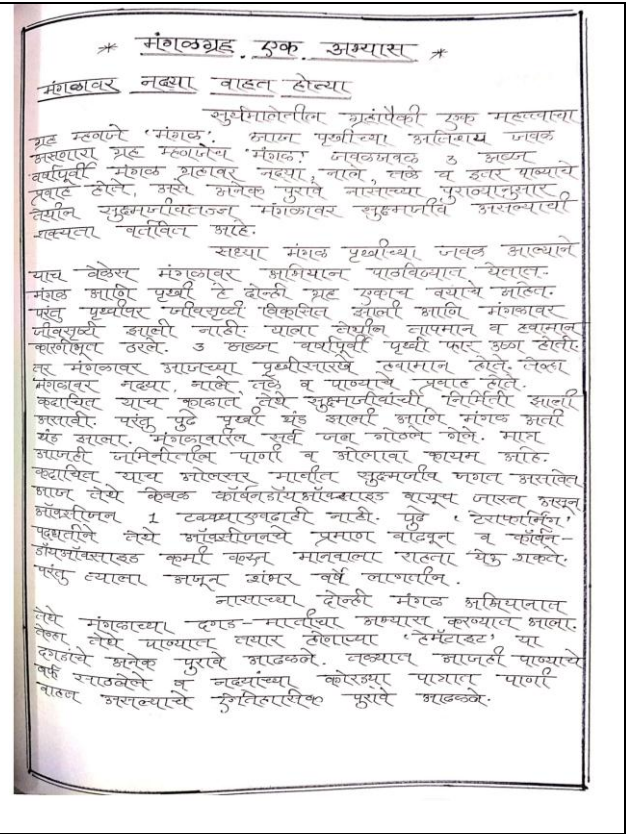 * मंगळग्रह एक अभ्यास *
मंगळावर नद्या वाहत होत्या
सुर्यमालेतील ग्रहांपैकी एक महत्त्वाचा
ग्रह म्हणजे 'मंगळ'. आज पृथ्वीच्या अतिशय जवळ
असणारा ग्रह म्हणजेच 'मंगळ! जवळजवळ 3 अब्ज
वर्षापूर्वी मंगळ ग्रहावर नद्या, नाले, तळे व इतर पाण्याचे
प्रवाह होते, असे अनेक पुरावे नासाच्या पुराव्यानुसार
तेथील सुक्ष्मजीवतज्ज्ञ मंगळावर सुक्ष्मजीव असल्याची
शक्यता वर्तवित आहे.
सध्या मंगळ पृथ्वीच्या जवळ आल्याने
याच वेळेस मंगळावर अभियान पाठविण्यात येतात.
मंगळ आणि पृथ्वी हे दोन्ही ग्रह एकाच वयाचे आहेत.
परंतु पृथ्वीवर जीवसृष्टी विकसित झाली आणि मंगळावर
जीवसृष्टी झाली नाही. याला तेथील तापमान व हवामान
कारणीभूत ठरले. 3 अब्ज वर्षापूर्वी पृथ्वी फार उष्ण होती.
तर मंगळावर आजच्या पृथ्वीसारखे हवामान होते. तेव्हा
मंगळावर नद्या, नाले, तळे व पाण्याचे प्रवाह होते.
कदाचित याच काळात तेथे सुक्ष्मजीवांची निर्मिती झाली
असावी. परंतु पुढे पृथ्वी थंड झाली आणि मंगळ अती
थंड झाला. मंगळावरिल सर्व जल गोठले गेले. मात्र
आजही जमिनीतील पाणी व ओलावा कायम आहे.
कदाचित याच ओलसर मातीत सुक्ष्मजीव जगत असावेत
आज तेथे केवळ कॉर्बनडॉयऑक्साइड वायूच जास्त असून
ऑक्सीजन 1 टक्क्याएवढाही नाही. पुढे 'टेराफॉर्मिंग'
पद्धतीने तेथे ऑक्सीजनचे प्रमाण वाढवून व कॉर्बन-
डॉयऑक्साइड कमी करून मानवाला राहता येऊ शकते.
परंतु त्याला अजून शंभर वर्षे लागतील.
नासाच्या दोन्ही मंगळ अभियानात
तेथे मंगळाच्या दगड-मातीचा अभ्यास करण्यात आला.
तेव्हा तेथे पाण्यात तयार होणाऱ्या 'हेमेटाइट' या
दगडांचे अनेक पुरावे आढळले. तळ्यात आजही पाण्याचे
बर्फ साठलेले व नद्यांच्या कोरड्या पात्रात पाणी
वाहत असल्याचे ऐतिहासिक पुरावे आढळले.